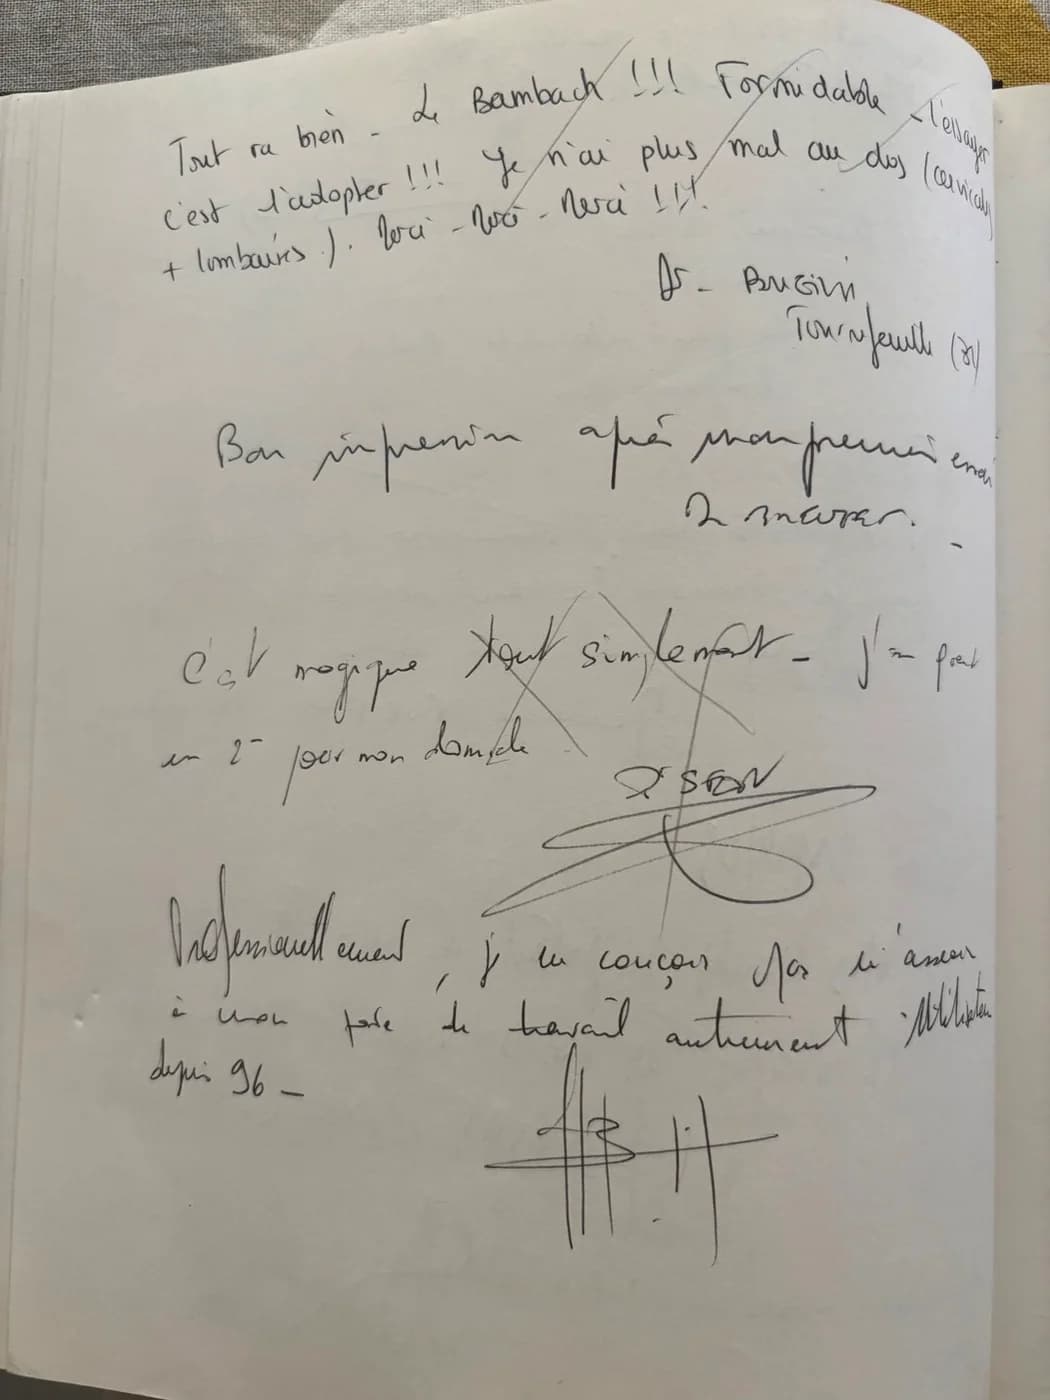 Tout va bien - Le Bambach !!! Formidable - l'essayer
c'est l'adopter !!! Je n'ai plus mal au dos (cervicales
+ lombaires). Merci - Merci - Merci !!!.
Dr -
Tournefeuille (31)
Bon impression après mon premier essai
C'est magique tout simplement - j'en prend
un 2 pour mon domicile
Professionnellement, je ne conçois pas m'asseoir
à mon poste de travail autrement. Utilisateur
depuis 96 -